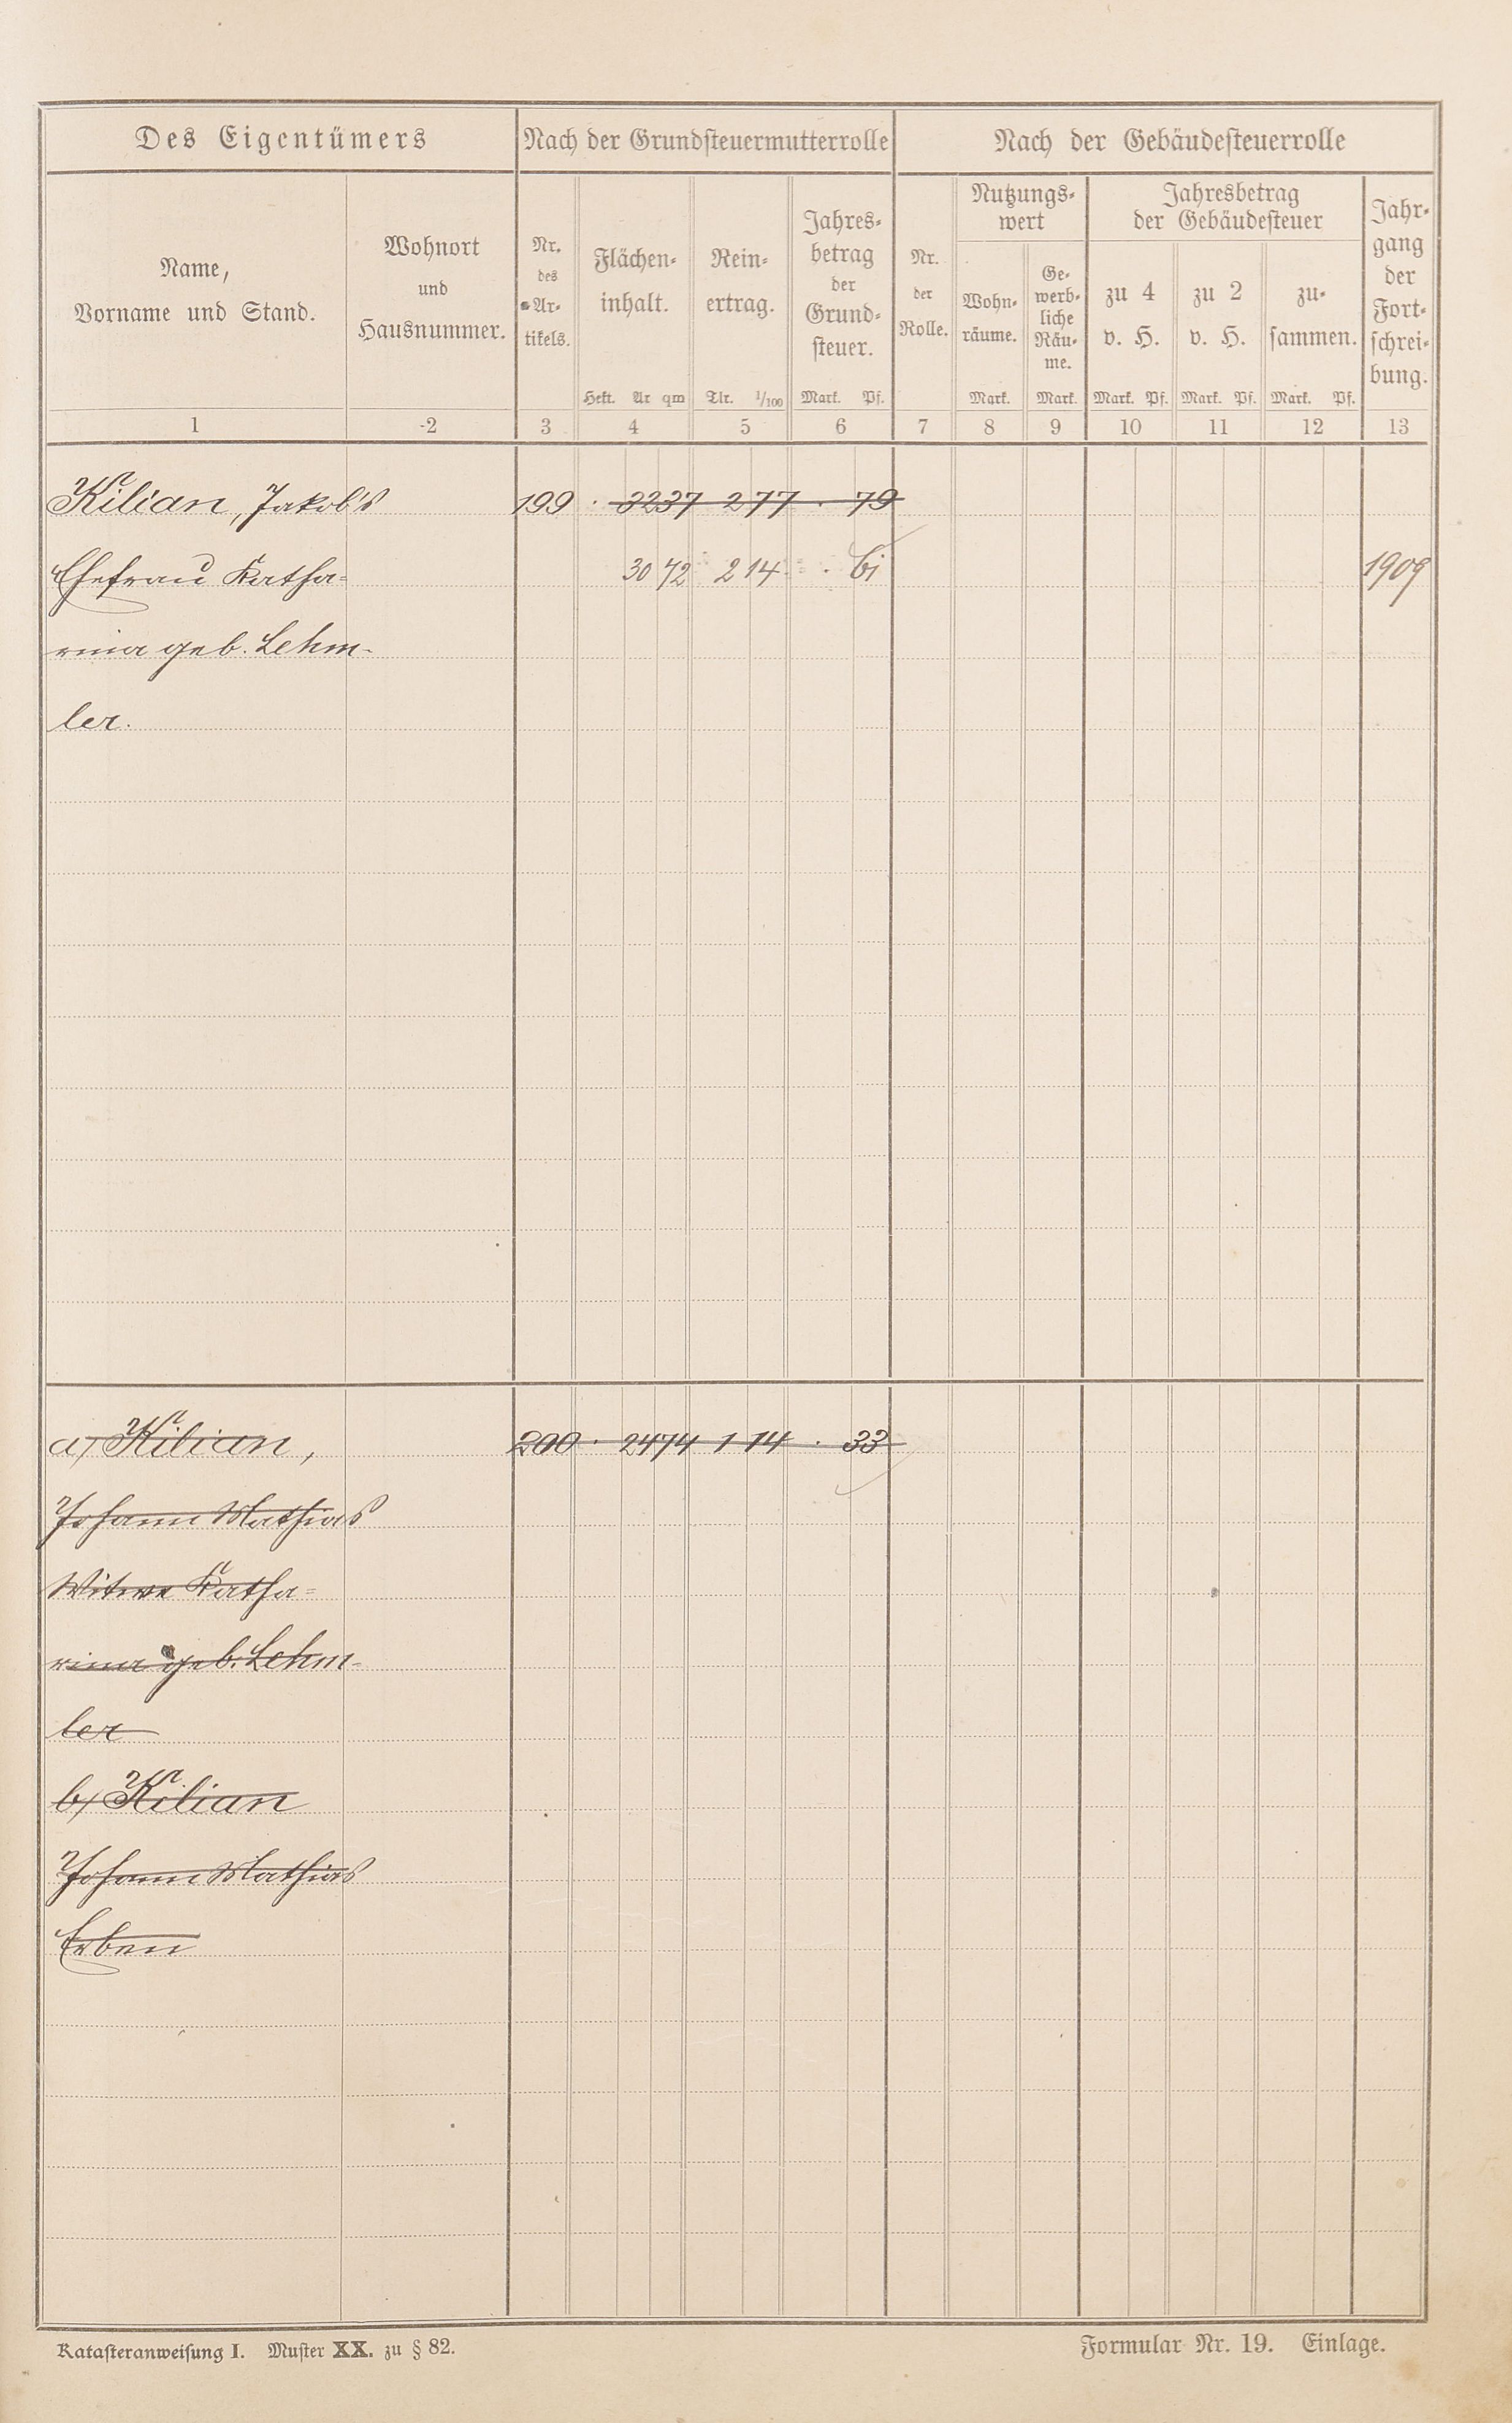 Des Eigentümers Nach der Grundsteuermutterrolle Nach der Gebäudesteuerrolle
Name,
Vorname und Stand.
Wohnort
und
Hausnummer.
Nr.
des
Ar-
tikels.
Flächen-
inhalt.
Hekt. Ar qm
Rein-
ertrag.
Tlr. 1/100
Jahres-
betrag
der
Grund-
steuer.
Mark. Pf.
Nr.
der
Rolle.
Nutzungs-
wert
Wohn-
räume.
Mark.
Ge-
werb-
liche
Räu-
me.
Mark.
Jahresbetrag
der Gebäudesteuer
zu 4
v. H.
Mark. Pf.
zu 2
v. H.
Mark. Pf.
zu-
sammen.
Mark. Pf.
Jahr-
gang
der
Fort-
schrei-
bung.
1 2 3 4 5 6 7 8 9 10 11 12 13
Kilian, Jakob's 199 . 3237 277 . 79
Ehefrau Katha- 30 72 2 14 . 1909
rina geb. Lehm-
ler.
a) Kilian, 200 . 2474 1 14 . 33
Johann Mathias
Witwe Katha-
rina geb. Lehm-
ler
b) Kilian
Johann Mathias
Erben
Katasteranweisung I. Muster XX. zu § 82. Formular Nr. 19. Einlage.